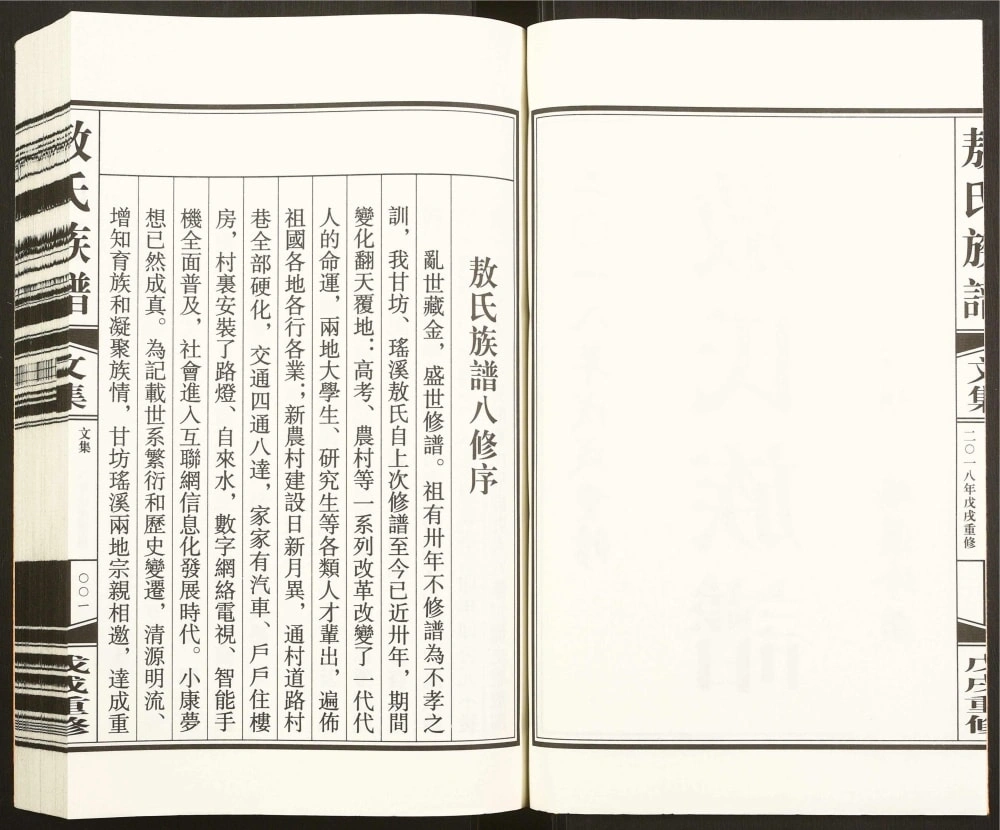 敖氏族譜
文集
二〇一八年戊戌重修
戊戌重修
敖氏族譜八修序
亂世藏金，盛世修譜。祖有卅年不修譜為不孝之
訓，我甘坊、瑤溪敖氏自上次修譜至今已近卅年，期間
變化翻天覆地：高考、農村等一系列改革改變了一代代
人的命運，兩地大學生、研究生等各類人才輩出，遍佈
祖國各地各行各業；新農村建設日新月異，通村道路村
巷全部硬化，交通四通八達，家家有汽車、戶戶住樓
房，村裏安裝了路燈、自來水，數字網絡電視、智能手
機全面普及，社會進入互聯網信息化發展時代。小康夢
想已然成真。為記載世系繁衍和歷史變遷，清源明流、
增知育族和凝聚族情，甘坊瑤溪兩地宗親相邀，達成重
敖氏族譜
文集
文集
〇〇一
戊戌重修